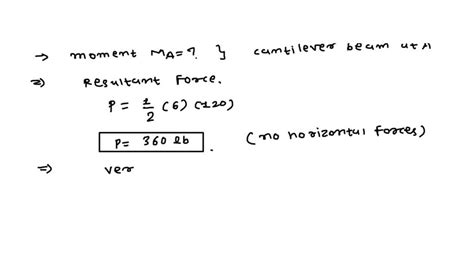 → moment MA = ? } cantilever beam at A
⇒ Resultant Force.
P = 1/2 (6) (120)
P = 360 lb. (no horizontal forces)
⇒ ver